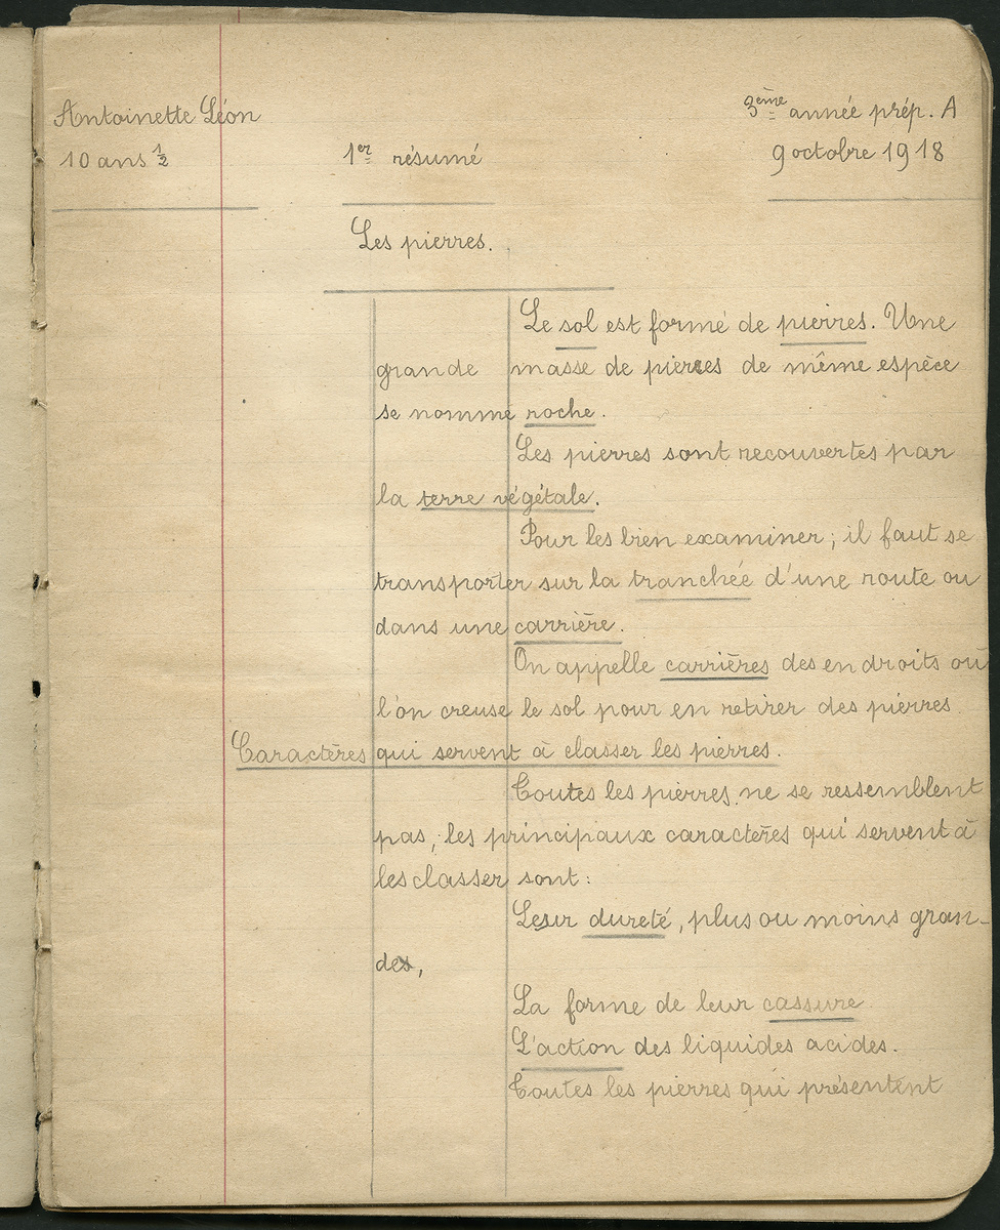 Antoinette Léon
3ème année prép. A
10 ans ½
1er résumé
9 octobre 1918
Les pierres.
Le sol est formé de pierres. Une
grande masse de pierres de même espèce
se nomme roche.
Les pierres sont recouvertes par
la terre végétale.
Pour les bien examiner ; il faut se
transporter sur la tranchée d'une route ou
dans une carrière.
On appelle carrières des endroits où
l'on creuse le sol pour en retirer des pierres
Caractères qui servent à classer les pierres.
Toutes les pierres ne se ressemblent
pas, les principaux caractères qui servent à
les classer sont :
Leur dureté, plus ou moins gran-
de,
La forme de leur cassure
L'action des liquides acides.
Toutes les pierres qui présentent